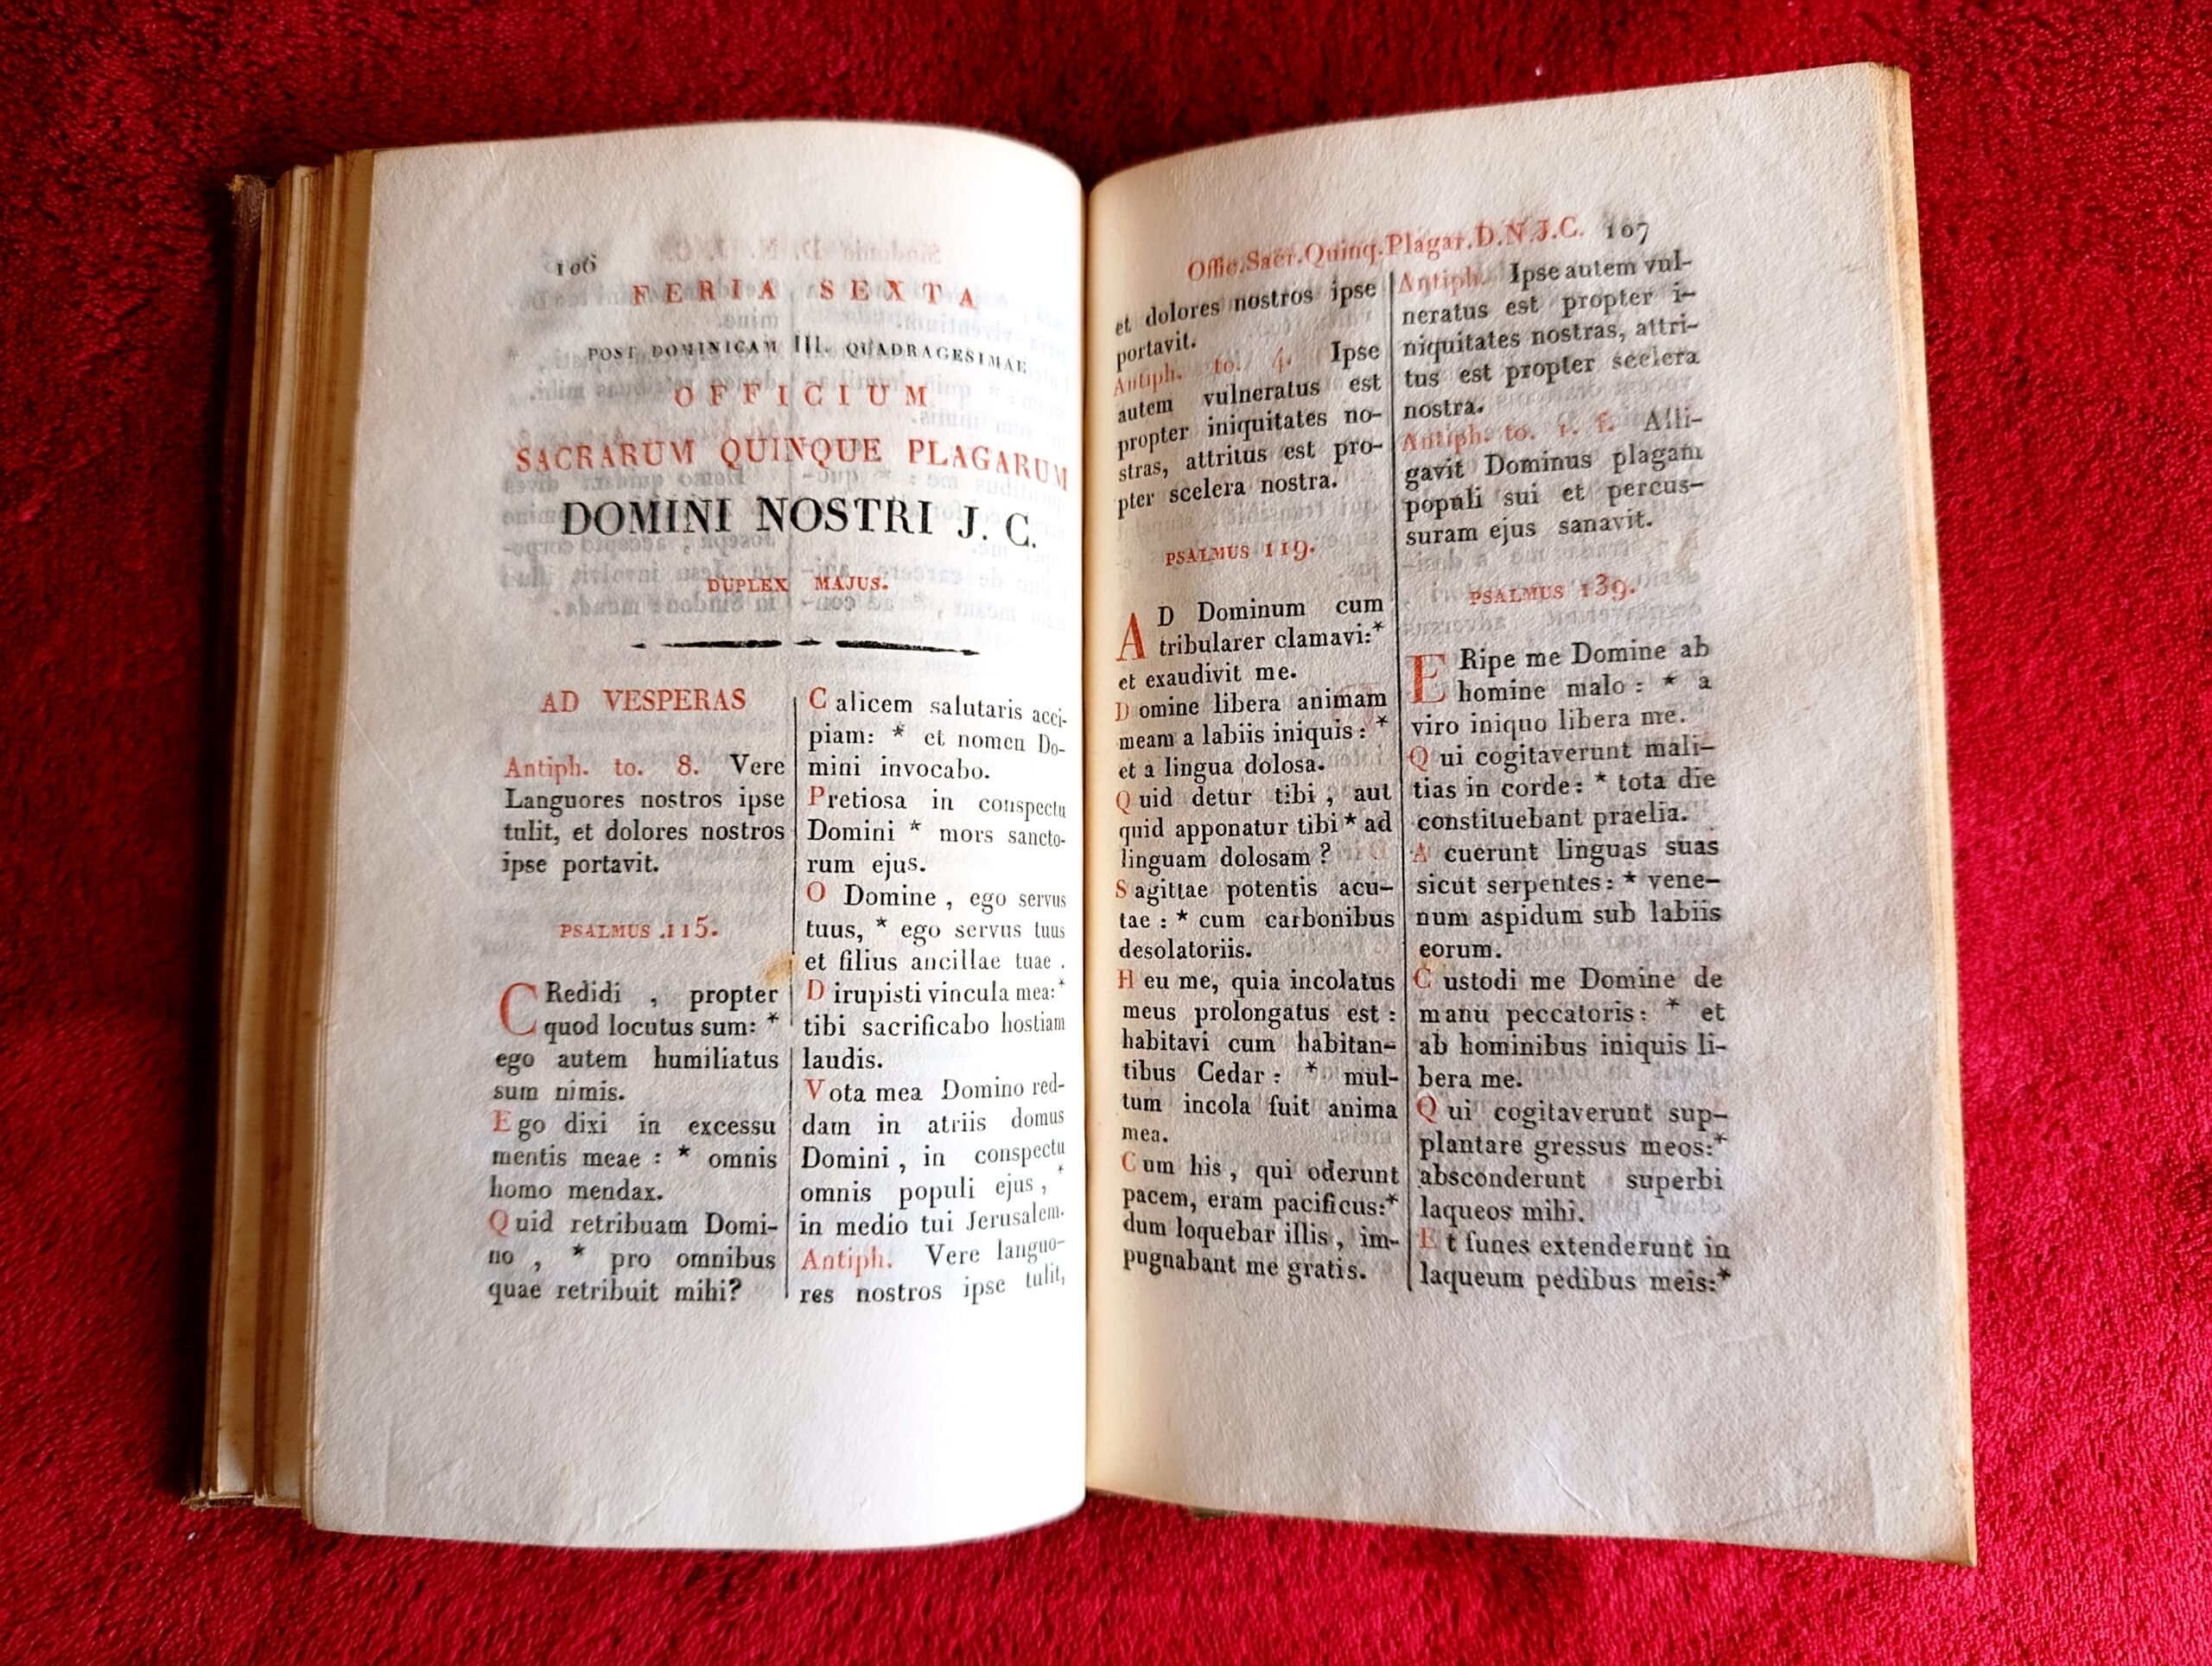 106
FERIA SEXTA
POST DOMINICAM III. QUADRAGESIMAE
OFFICIUM
SACRARUM QUINQUE PLAGARUM
DOMINI NOSTRI J. C.
DUPLEX MAJUS.
AD VESPERAS
Antiph. to. 8. Vere
Languores nostros ipse
tulit, et dolores nostros
ipse portavit.
PSALMUS .115.
CRedidi , propter
quod locutus sum: *
ego autem humiliatus
sum nimis.
Ego dixi in excessu
mentis meae : * omnis
homo mendax.
Quid retribuam Domi-
no , * pro omnibus
quae retribuit mihi?
Calicem salutaris acci-
piam: * et nomen Do-
mini invocabo.
Pretiosa in conspectu
Domini * mors sancto-
rum ejus.
O Domine , ego servus
tuus, * ego servus tuus
et filius ancillae tuae .
Dirupisti vincula mea:*
tibi sacrificabo hostiam
laudis.
Vota mea Domino red-
dam in atriis domus
Domini , in conspectu
omnis populi ejus , *
in medio tui Jerusalem.
Antiph. Vere languo-
res nostros ipse tulit,
Offic.Sacr.Quinq.Plagar.D.N.J.C. 107
et dolores nostros ipse
portavit.
Antiph. to. 4. Ipse
autem vulneratus est
propter iniquitates no-
stras, attritus est pro-
pter scelera nostra.
PSALMUS 119.
AD Dominum cum
tribularer clamavi:*
et exaudivit me.
Domine libera animam
meam a labiis iniquis : *
et a lingua dolosa.
Quid detur tibi , aut
quid apponatur tibi * ad
linguam dolosam ?
Sagittae potentis acu-
tae : * cum carbonibus
desolatoriis.
Heu me, quia incolatus
meus prolongatus est :
habitavi cum habitan-
tibus Cedar : * mul-
tum incola fuit anima
mea.
Cum his , qui oderunt
pacem, eram pacificus:*
dum loquebar illis , im-
pugnabant me gratis.
Antiph. Ipse autem vul-
neratus est propter i-
niquitates nostras, attri-
tus est propter scelera
nostra.
Antiph. to. 1. f. Alli-
gavit Dominus plagam
populi sui et percus-
suram ejus sanavit.
PSALMUS 139.
ERipe me Domine ab
homine malo : * a
viro iniquo libera me.
Qui cogitaverunt mali-
tias in corde : * tota die
constituebant praelia.
Acuerunt linguas suas
sicut serpentes : * vene-
num aspidum sub labiis
eorum.
Custodi me Domine de
manu peccatoris : * et
ab hominibus iniquis li-
bera me.
Qui cogitaverunt sup-
plantare gressus meos:*
absconderunt superbi
laqueos mihi.
Et funes extenderunt in
laqueum pedibus meis:*